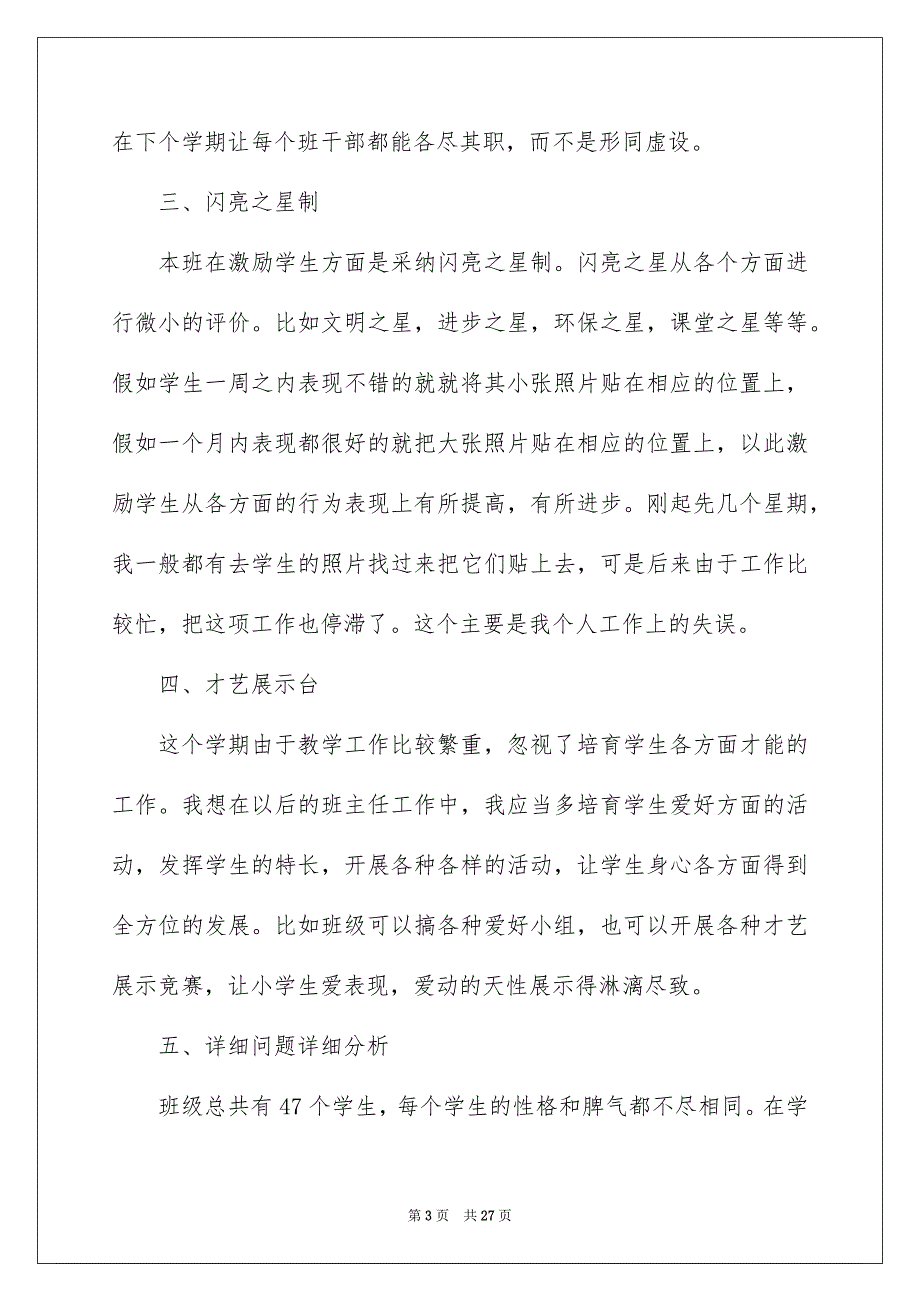 在下个学期让每个班干部都能各尽其职，而不是形同虚设。
三、闪亮之星制
本班在激励学生方面是采纳闪亮之星制。闪亮之星从各个方面进
行微小的评价。比如文明之星，进步之星，环保之星，课堂之星等等。
假如学生一周之内表现不错的就就将其小张照片贴在相应的位置上，
假如一个月内表现都很好的就把大张照片贴在相应的位置上，以此激
励学生从各方面的行为表现上有所提高，有所进步。刚起先几个星期，
我一般都有去学生的照片找过来把它们贴上去，可是后来由于工作比
较忙，把这项工作也停滞了。这个主要是我个人工作上的失误。
四、才艺展示台
这个学期由于教学工作比较繁重，忽视了培育学生各方面才能的
工作。我想在以后的班主任工作中，我应当多培育学生爱好方面的活
动，发挥学生的特长，开展各种各样的活动，让学生身心各方面得到
全方位的发展。比如班级可以搞各种爱好小组，也可以开展各种才艺
展示竞赛，让小学生爱表现，爱动的天性展示得淋漓尽致。
五、详细问题详细分析
班级总共有 47 个学生，每个学生的性格和脾气都不尽相同。在学
第 3 页 共 27 页